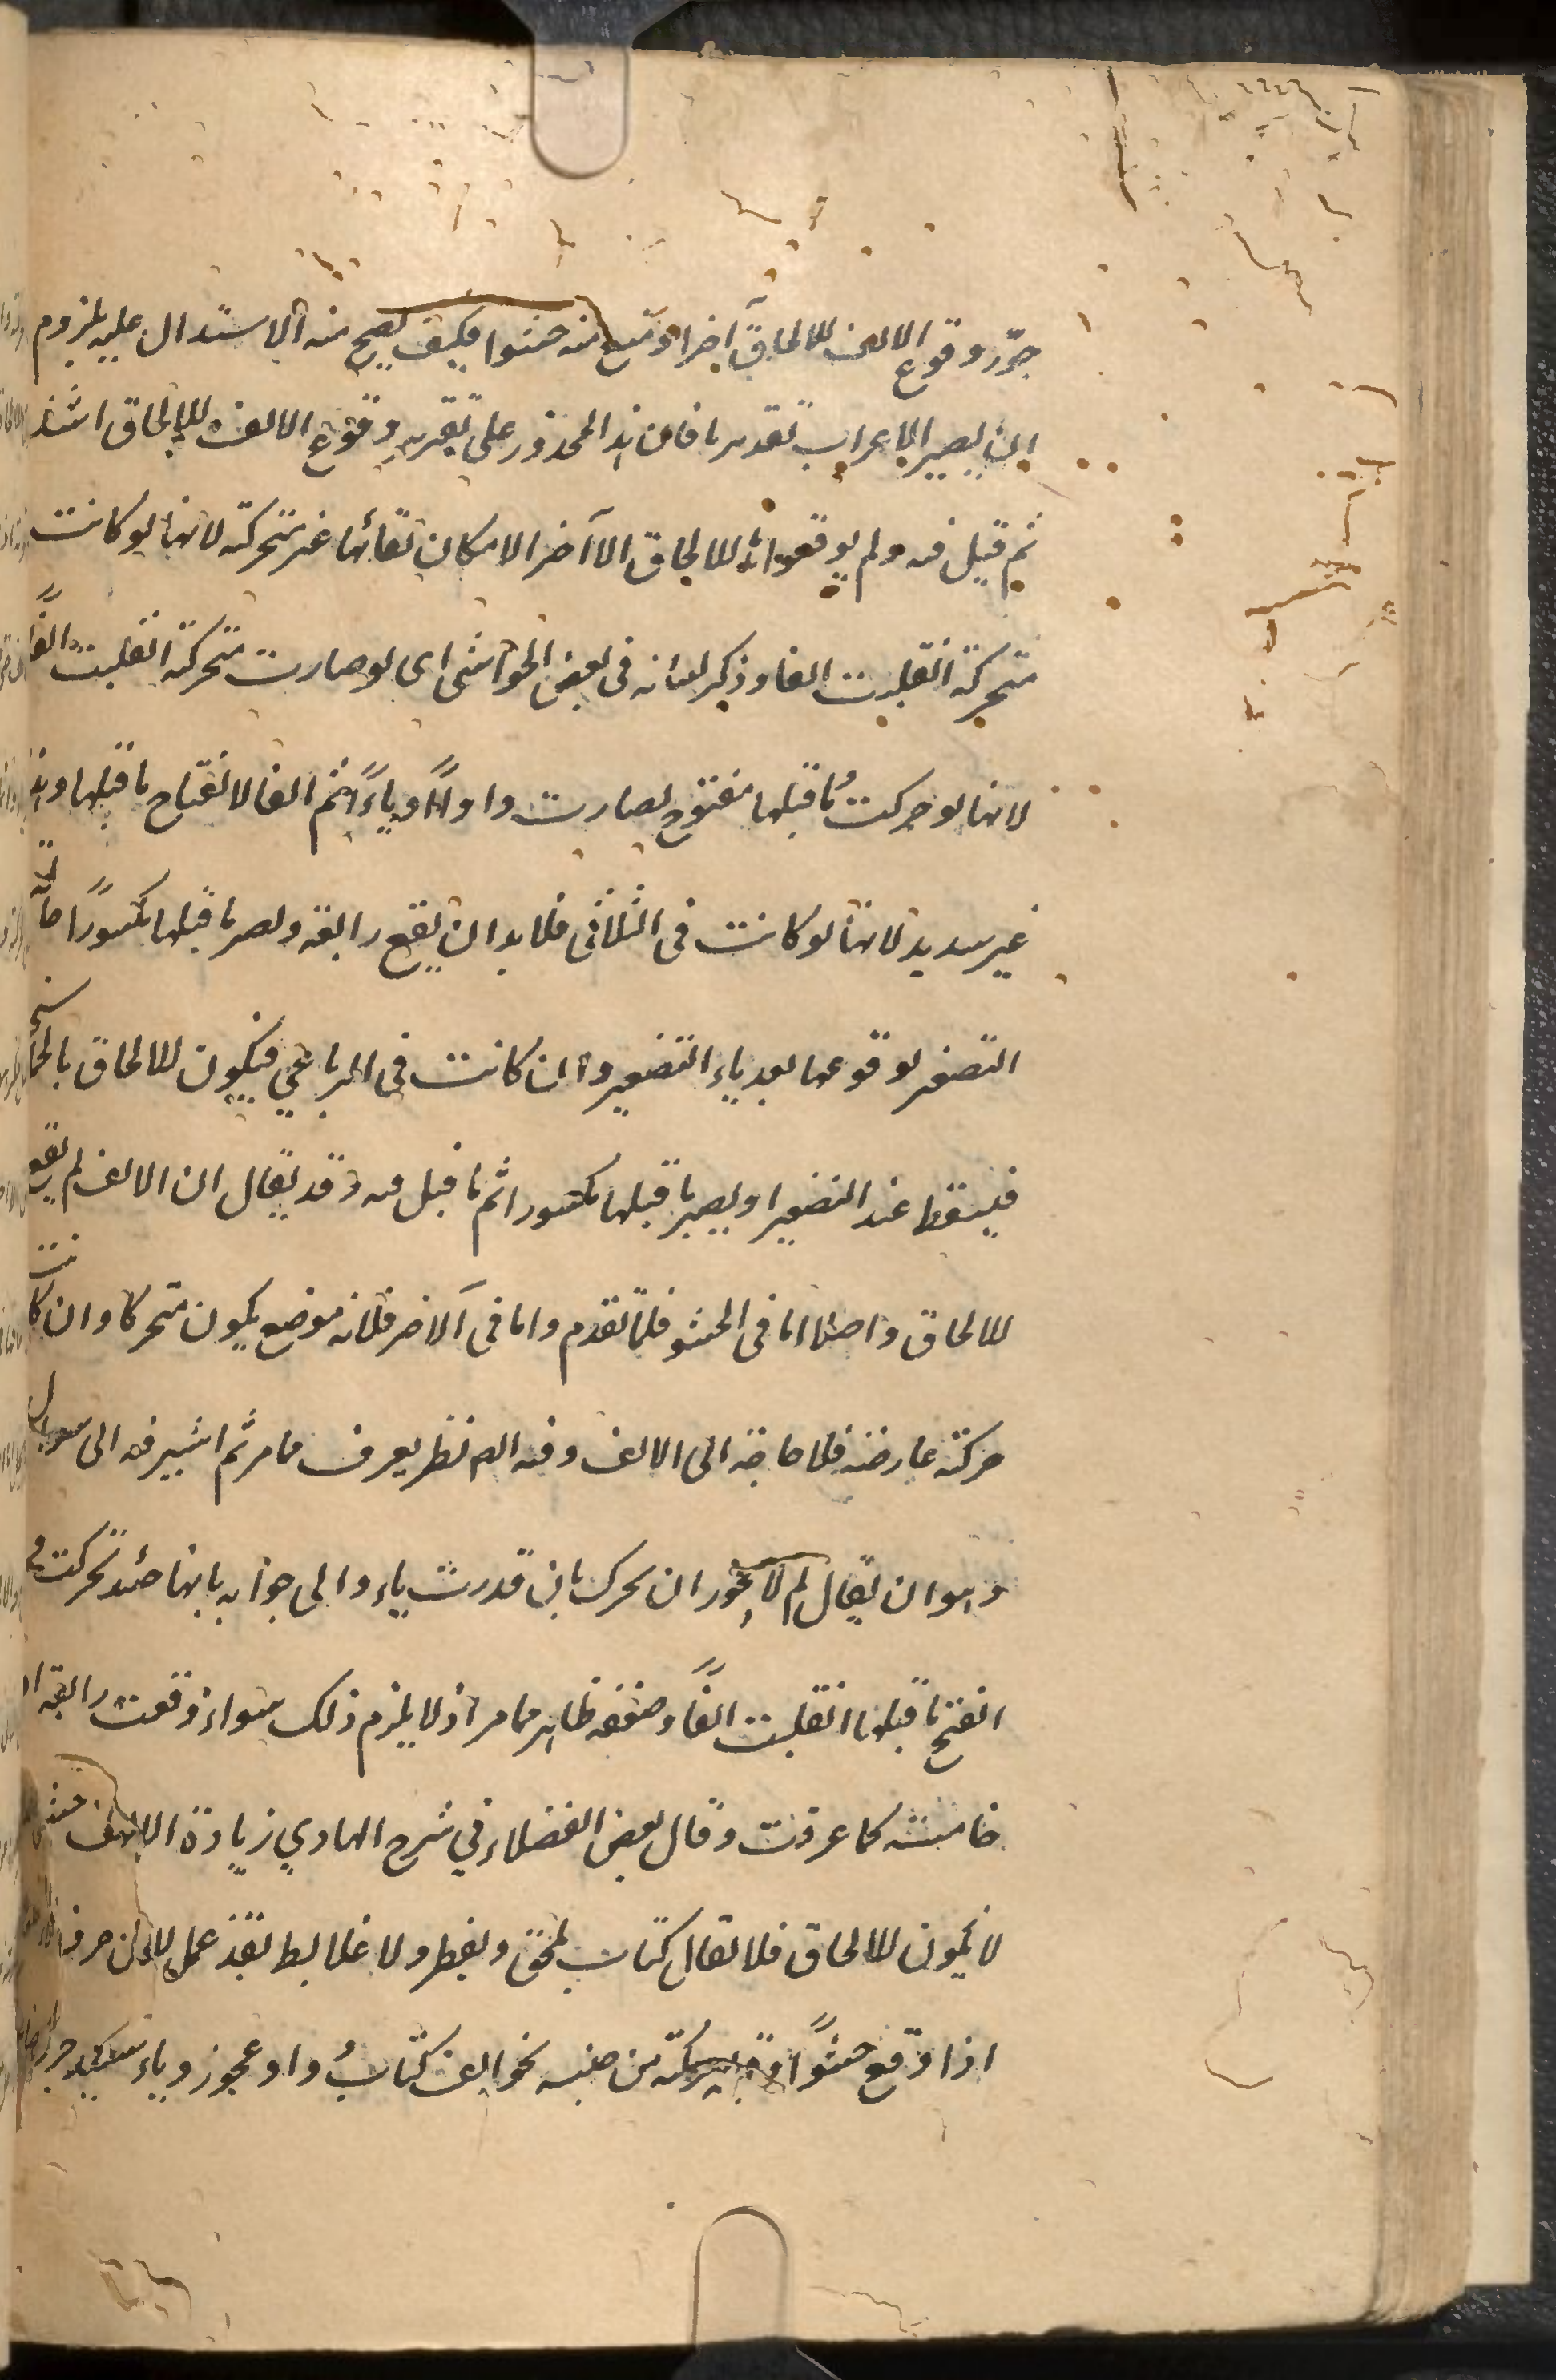 جوّز وقوع الالف للالحاق آخرا ومنع منه حشوا فكيف يصح منه الاستدال عليه بلزوم
ان يصير الاعراب تقديريا فان هذا المحذور على تقرير وقوع الالف للالحاق اشد
ثم قيل فيه ولم يوقعوا للالحاق الا آخرا لامكان بقائها غير متحركة لانها لو كانت
متحركة انقلبت الفا وذكر لبيانه فى بعض الحواشى اى لو صارت متحركة انقلبت الفًا
لانها لو حركت ما قبلها مفتوح لصارت واواً وياءً ثم الفا لانفتاح ما قبلها وهذا
غير سديد لانها لو كانت فى الثلاثى فلا بد ان يقع رابعة ويصير ما قبلها مكسورًا حالة
التصغير لوقوعها بعد ياء التصغير وان كانت فى الرباعي فيكون للالحاق بالخماسى
فيسقط عند التصغير او يصير ما قبلها مكسورا ثم ما قيل فيه وقد يقال ان الالف لم يقع
للالحاق واصلا اما فى الحشو فلما تقدم واما فى الآخر فلانه موضع يكون متحركا وان كانت
حركته عارضة فلا حاجة الى الالف وفيه نظر يعرف مما مر ثم اشير فيه الى سوال
وهو ان يقال لم لا يجوز ان يحرك بان قدرت ياء والى جوابه بانها حينئذ تحركت و
انفتح ما قبلها انقلبت الفًا وضعفه ظاهر مما مر اذ لا يلزم ذلك سواء وقعت رابعة او
خامسة كما عرفت وقال بعض الفضلاء في شرح الهادي زيادة الالف حشوا
لا يكون للالحاق فلا يقال كتاب ملحق بقمطر ولا علابط بقذعمل لان حرف
اذا وقع حشوًا وقبله حركة من جنسه نحو الف كتاب وواو عجوز وياء سعيد جرى